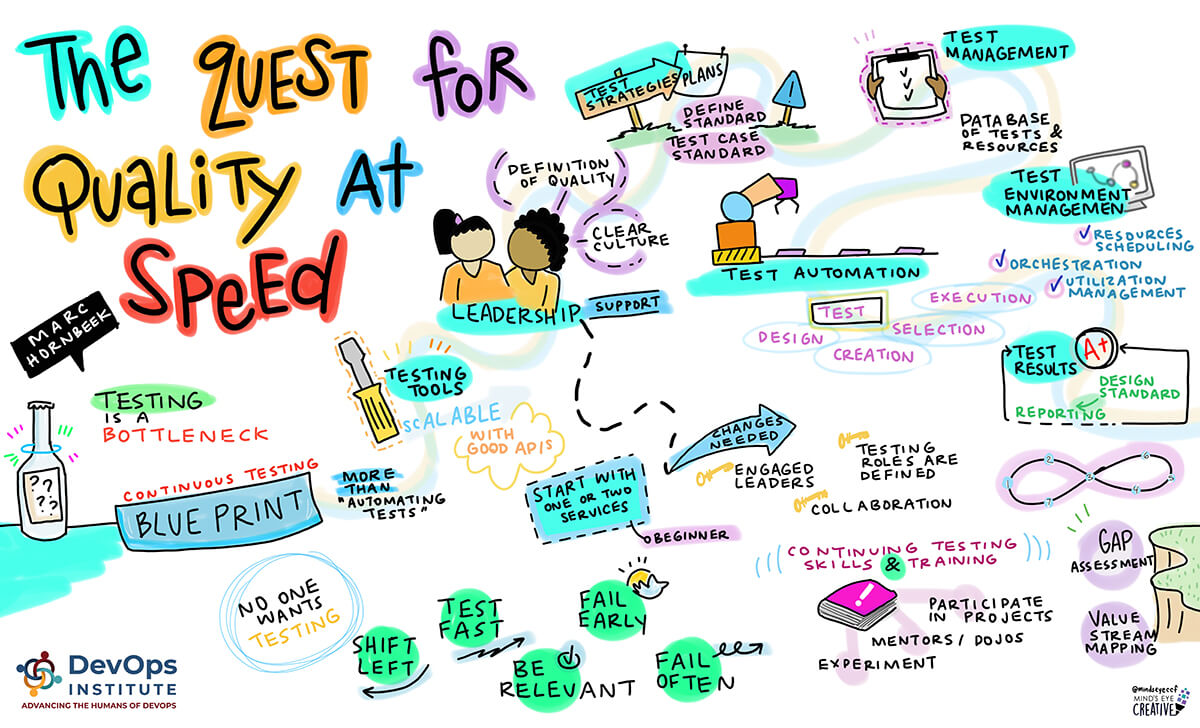 The QUEST FOR
QUALITY At
SPEED
MARC
HORNBEEK
TESTING
IS A
BOTTLENECK
? ?
? ?
CONTINUOUS TESTING
BLUE PRINT
MORE
THAN
"AUTOMATING
TESTS"
TESTING
TOOLS
SCALABLE
WITH
GOOD APIs
LEADERSHIP
SUPPORT
DEFINITION
OF QUALITY
CLEAR
CULTURE
TEST
STRATEGIES
PLANS
DEFINE
STANDARD
TEST CASE
STANDARD
TEST
MANAGEMENT
DATABASE
OF TESTS &
RESOURCES
TEST
ENVIRONMENT
MANAGEMEN
RESOURCES
SCHEDULING
ORCHESTRATION
UTILIZATION
MANAGEMENT
TEST AUTOMATION
TEST
EXECUTION
SELECTION
DESIGN
CREATION
TEST
RESULTS
A+
DESIGN
STANDARD
REPORTING
1 2 3 4 5 6 7
START WITH
ONE OR TWO
SERVICES
BEGINNER
CHANGES
NEEDED
ENGAGED
LEADERS
TESTING
ROLES ARE
DEFINED
COLLABORATION
CONTINUING TESTING
SKILLS & TRAINING
!
PARTICIPATE
IN PROJECTS
MENTORS / DOJOS
EXPERIMENT
GAP
ASSESSMENT
VALUE
STREAM
MAPPING
NO ONE
WANTS
TESTING
SHIFT
LEFT
TEST
FAST
BE
RELEVANT
FAIL
EARLY
FAIL
OFTEN
DevOps
INSTITUTE
ADVANCING THE HUMANS OF DEVOPS
@mindseyeccf
MIND'S EYE
CREATIVE